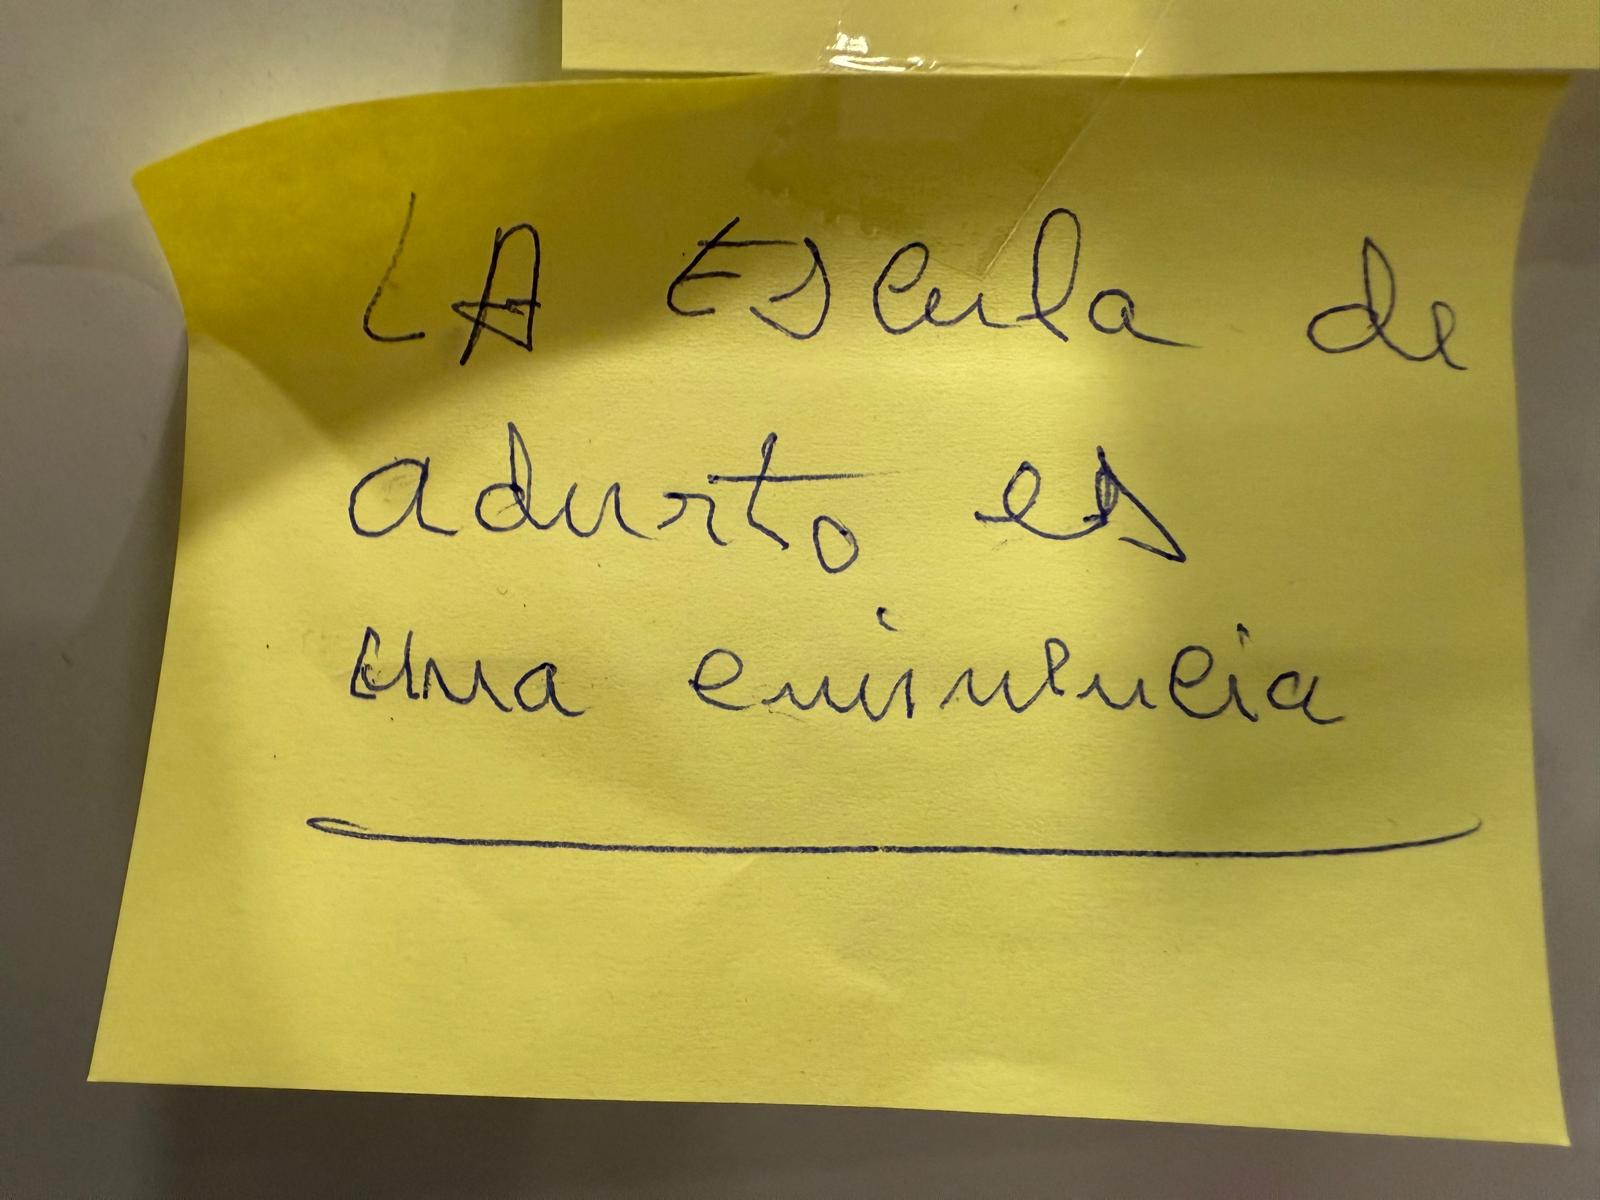 LA Escula de
adurto es
una eminencia